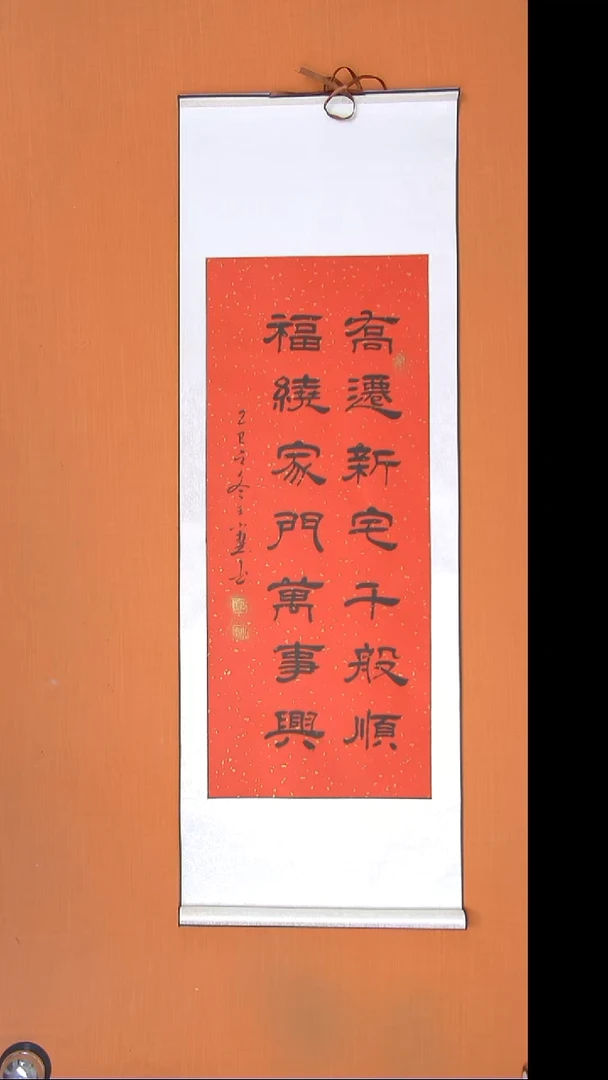 高遷新宅千般順
福繞家門萬事興
乙巳年冬